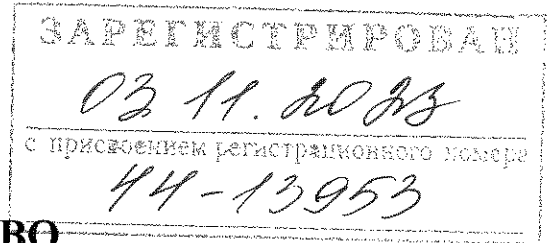 ЗАРЕГИСТРИРОВАН
03.11.2023
с присвоением регистрационного номера
44-13953
ВО